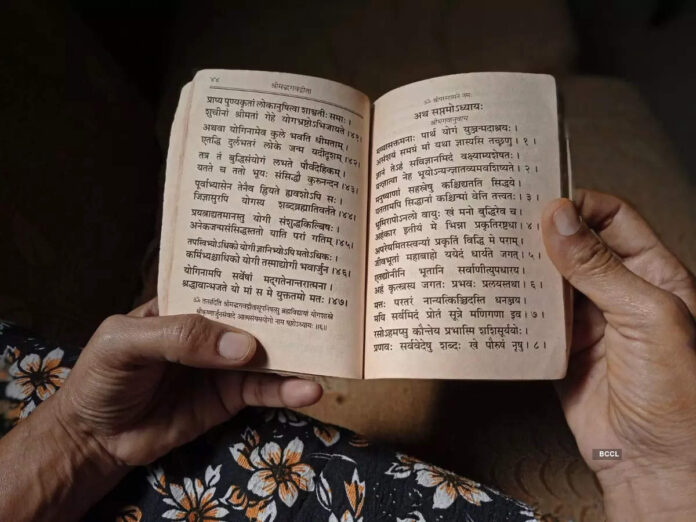 ४४
श्रीमद्भगवद्गीता
प्राप्य पुण्यकृतां लोकानुषित्वा शाश्वतीः समाः ।
शुचीनां श्रीमतां गेहे योगभ्रष्टोऽभिजायते ।४१।
अथवा योगिनामेव कुले भवति धीमताम् ।
एतद्धि दुर्लभतरं लोके जन्म यदीदृशम् ।४२।
तत्र तं बुद्धिसंयोगं लभते पौर्वदेहिकम् ।
यतते च ततो भूयः संसिद्धौ कुरुनन्दन ।४३।
पूर्वाभ्यासेन तेनैव ह्रियते ह्यवशोऽपि सः ।
जिज्ञासुरपि योगस्य शब्दब्रह्मातिवर्तते ।४४।
प्रयत्नाद्यतमानस्तु योगी संशुद्धकिल्बिषः ।
अनेकजन्मसंसिद्धस्ततो याति परां गतिम् ।४५।
तपस्विभ्योऽधिको योगी ज्ञानिभ्योऽपि मतोऽधिकः ।
कर्मिभ्यश्चाधिको योगी तस्माद्योगी भवार्जुन ।४६।
योगिनामपि सर्वेषां मद्गतेनान्तरात्मना ।
श्रद्धावान्भजते यो मां स मे युक्ततमो मतः ।४७।
ॐ तत्सदिति श्रीमद्भगवद्गीतासूपनिषत्सु ब्रह्मविद्यायां योगशास्त्रे
श्रीकृष्णार्जुनसंवादे आत्मसंयमयोगो नाम षष्ठोऽध्यायः ॥६॥
ॐ श्रीपरमात्मने नमः
अथ सप्तमोऽध्यायः
श्रीभगवानुवाच
मय्यासक्तमनाः पार्थ योगं युञ्जन्मदाश्रयः ।
असंशयं समग्रं मां यथा ज्ञास्यसि तच्छृणु । १ ।
ज्ञानं तेऽहं सविज्ञानमिदं वक्ष्याम्यशेषतः ।
यज्ज्ञात्वा नेह भूयोऽन्यज्ज्ञातव्यमवशिष्यते । २ ।
मनुष्याणां सहस्रेषु कश्चिद्यतति सिद्धये ।
यततामपि सिद्धानां कश्चिन्मां वेत्ति तत्त्वतः । ३ ।
भूमिरापोऽनलो वायुः खं मनो बुद्धिरेव च ।
अहंकार इतीयं मे भिन्ना प्रकृतिरष्टधा । ४ ।
अपरेयमितस्त्वन्यां प्रकृतिं विद्धि मे पराम् ।
जीवभूतां महाबाहो ययेदं धार्यते जगत् । ५ ।
एतद्योनीनि भूतानि सर्वाणीत्युपधारय ।
अहं कृत्स्नस्य जगतः प्रभवः प्रलयस्तथा । ६ ।
मत्तः परतरं नान्यत्किञ्चिदस्ति धनञ्जय ।
मयि सर्वमिदं प्रोतं सूत्रे मणिगणा इव । ७ ।
रसोऽहमप्सु कौन्तेय प्रभास्मि शशिसूर्ययोः ।
प्रणवः सर्ववेदेषु शब्दः खे पौरुषं नृषु । ८ ।
BCCL